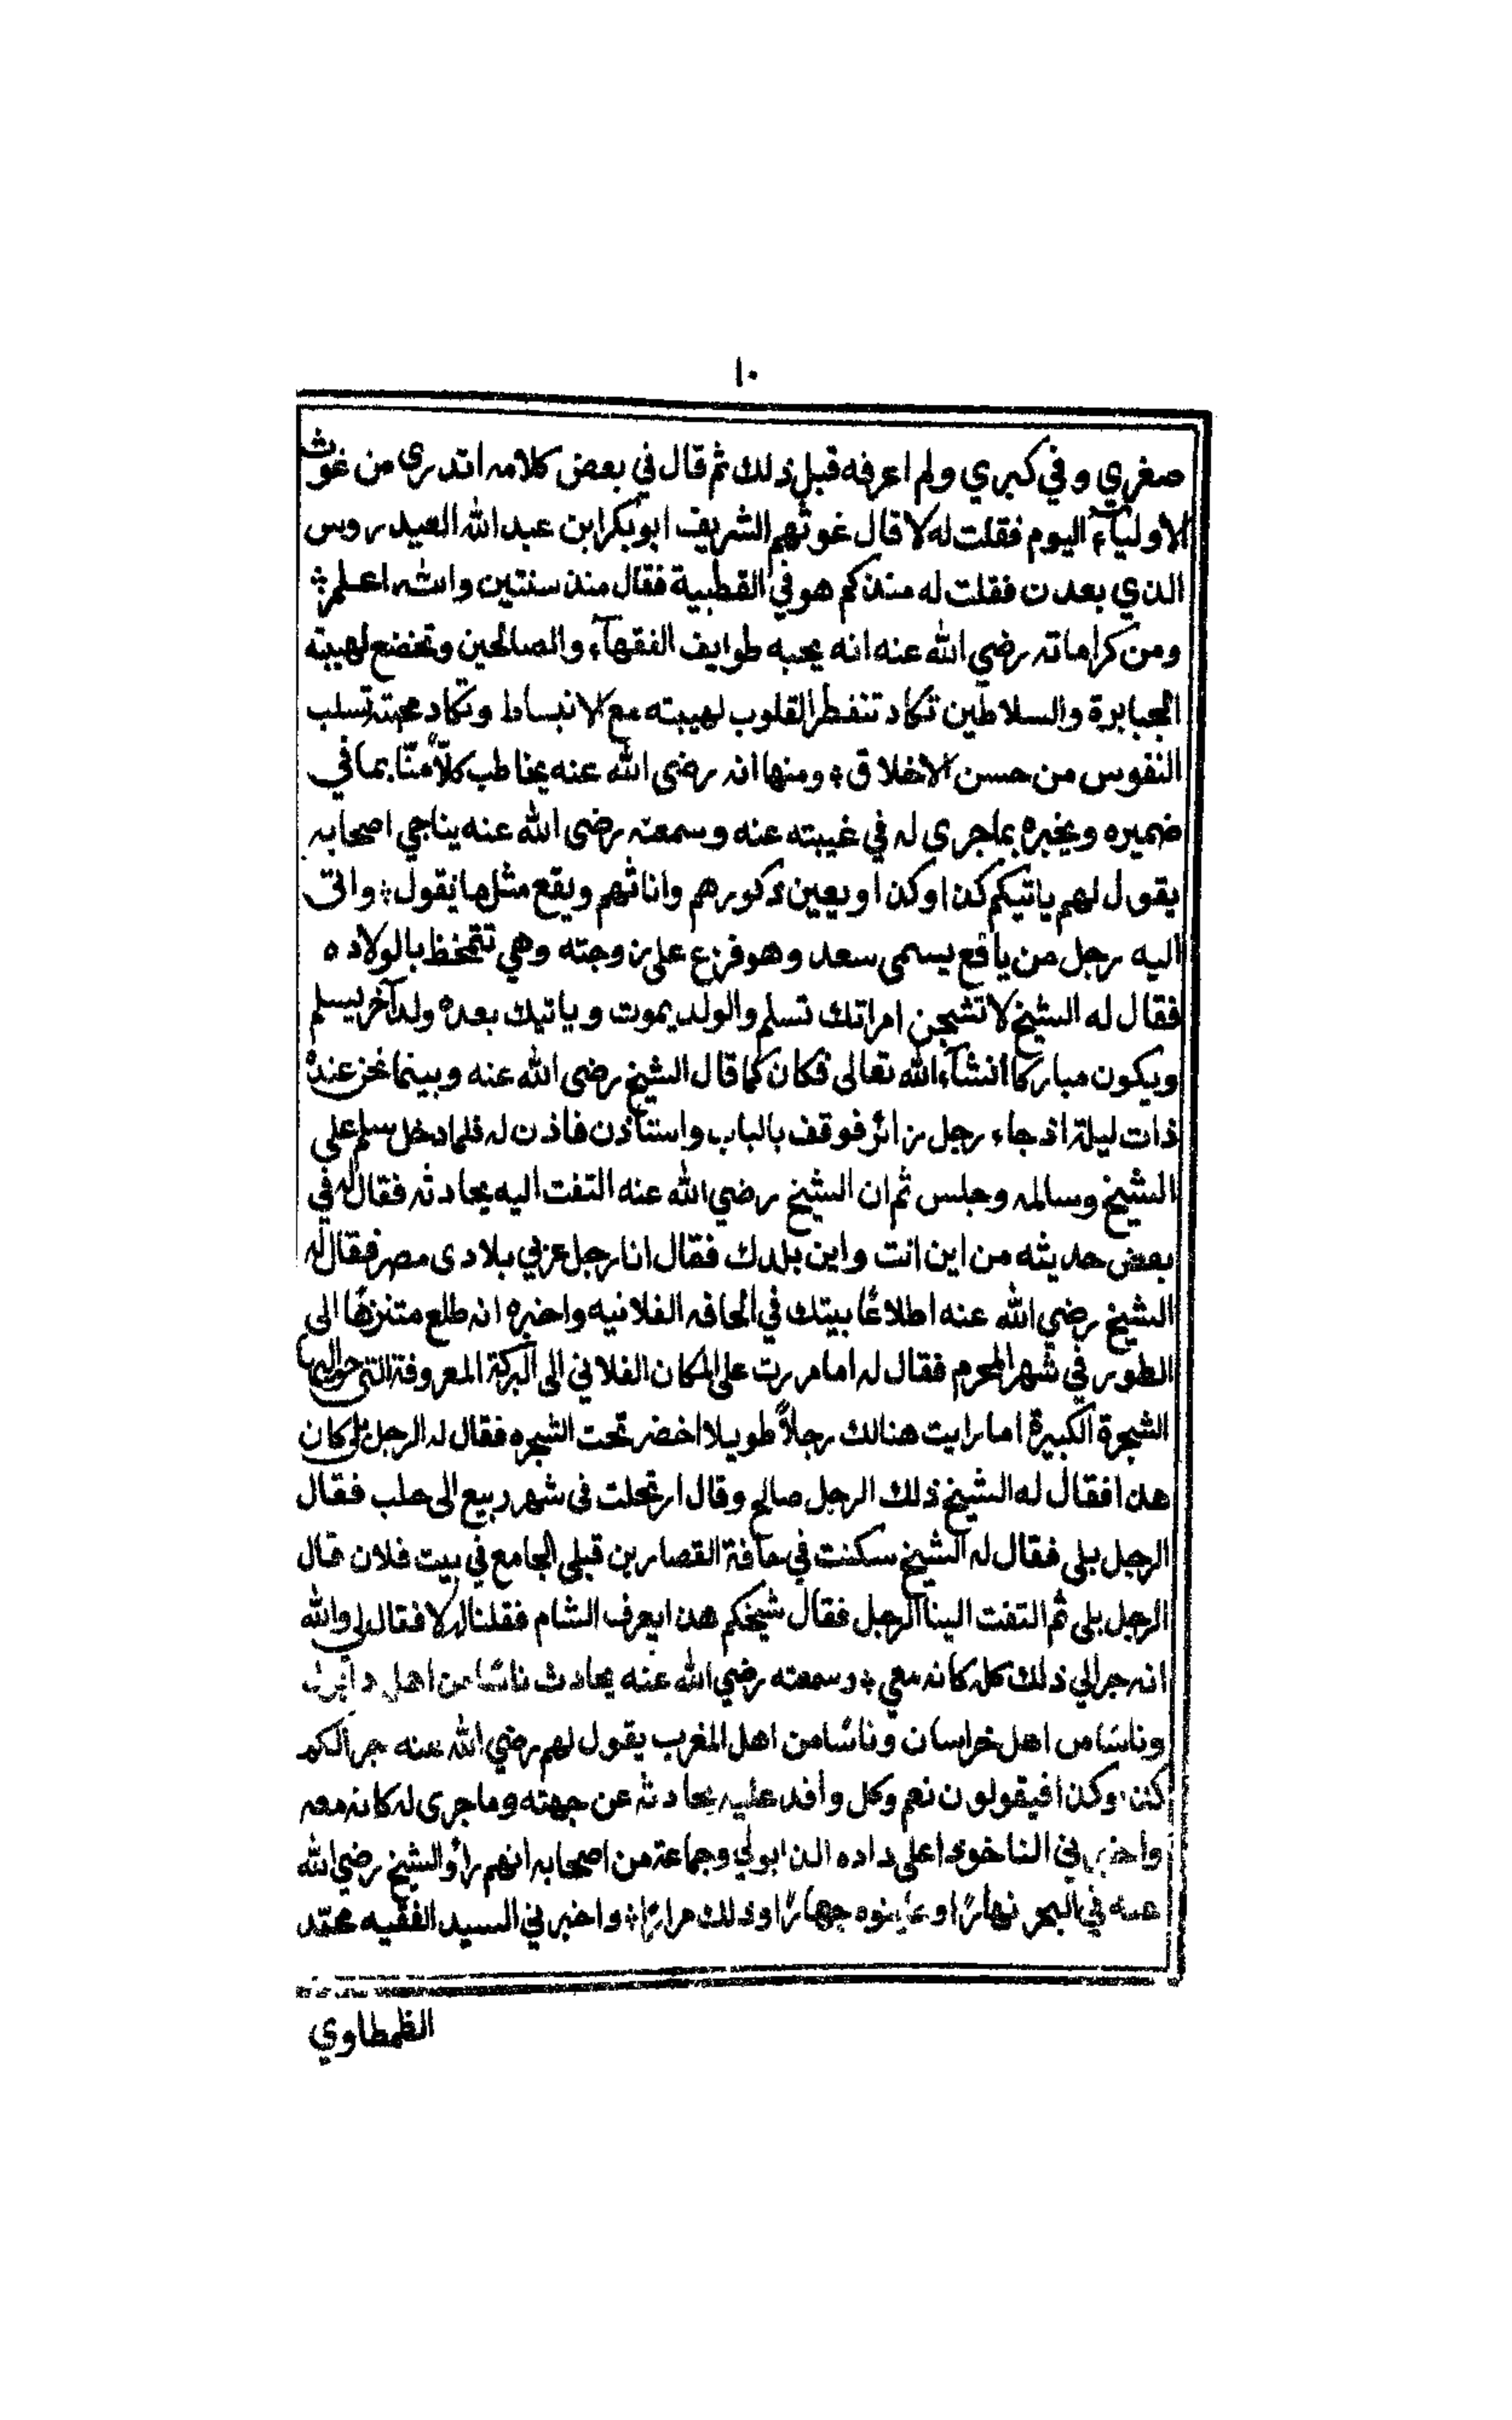 ١٠
صغري وفي كبري ولم اعرفه قبل ذلك ثم قال في بعض كلامه اتدري من غوث
الاوليآء اليوم فقلت له لا قال غوثهم الشريف ابو بكر ابن عبد الله العيدروس
الذي بعدن فقلت له منذ كم هو في القطبية فقال منذ سنتين والله اعلم
ومن كراماته رضي الله عنه انه يحبه طوايف الفقهآء والصالحين وتخضع لهيبته
الجبابرة والسلاطين تكاد تنفطر القلوب لهيبته مع الانبساط وتكاد محبته تسلب
النفوس من حسن الاخلاق ومنها انه رضي الله عنه يخاطب كلاًّ منّا بما في
ضميره ويخبره بما جرى له في غيبته عنه وسمعته رضي الله عنه يناجي اصحابه
يقول لهم ياتيكم كذا وكذا ويعين ذكورهم واناثهم ويقع مثل ما يقول واتى
اليه رجل من يافع يسمى سعد وهو فزع على زوجته وهي تتمخظ بالولاده
فقال له الشيخ لا تشجن امراتك تسلم والولد يموت وياتيك بعده ولد آخر يسلم
ويكون مباركا انشآء الله تعالى فكان كما قال الشيخ رضي الله عنه وبينما نحن عنده
ذات ليلة اذ جاء رجل زائر فوقف بالباب واستأذن فاذن له فلما دخل سلم على
الشيخ وسالمه وجلس ثم ان الشيخ رضي الله عنه التفت اليه يحادثه فقال له في
بعض حديثه من اين انت واين بلدك فقال انا رجل عزبي بلادى مصر فقال له
الشيخ رضي الله عنه اطلاعًا بيتك في الحافه الفلانيه واخبره انه طلع متنزهًا الى
الطور في شهر المحرم فقال له اما مررت على المكان الفلاني الى البركة المعروفة التي حواليها
الشجرة الكبيرة اما رايت هنالك رجلاً طويلا اخضر تحت الشجره فقال له الرجل بلى كان
هذا فقال له الشيخ ذلك الرجل صالح وقال ارتحلت في شهر ربيع الى حلب فقال
الرجل بلى فقال له الشيخ سكنت في حافة القصارين قبلى الجامع في بيت فلان قال
الرجل بلى ثم التفت الينا الرجل فقال شيخكم هذا يعرف الشام فقلنا له لا فقال لي والله
انه جرالي ذلك كله كانه معي وسمعته رضي الله عنه يحادث ناسًا من اهل
وناسًا من اهل خراسان وناسًا من اهل المغرب يقول لهم رضي الله عنه جرالكم
كذا وكذا فيقولون نعم وكل وافد عليه يحادثه عن جهته وما جرى له كانه معه
واخبرني الناخوذا على داده الذابولي وجماعة من اصحابه انهم رأو الشيخ رضي الله
عنه في البحر نهارًا وعاينوه جهارًا وذلك مرارًا واخبرني السيد الفقيه محمّد
الظمطاوي